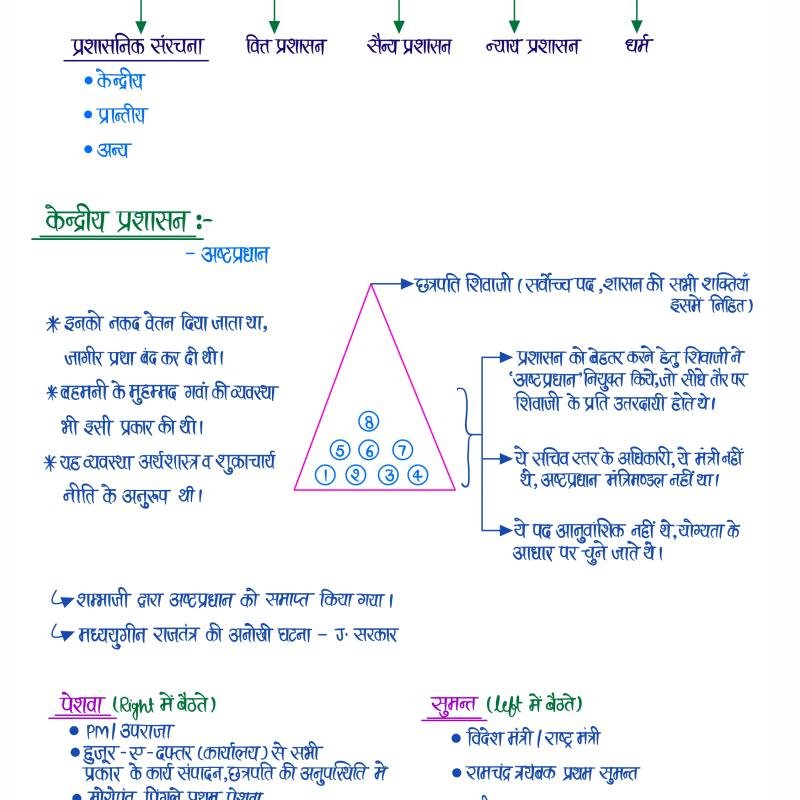 प्रशासनिक संरचना वित्त प्रशासन सैन्य प्रशासन न्याय प्रशासन धर्म
• केन्द्रीय
• प्रान्तीय
• अन्य
केन्द्रीय प्रशासन :-
- अष्टप्रधान
छत्रपति शिवाजी (सर्वोच्च पद, शासन की सभी शक्तियाँ
इसमें निहित)
* इनको नकद वेतन दिया जाता था,
जागीर प्रथा बंद कर दी थी।
* बहमनी के मुहम्मद गवां की व्यवस्था
भी इसी प्रकार की थी।
* यह व्यवस्था अर्थशास्त्र व शुक्राचार्य
नीति के अनुरूप थी।
8
5 6 7
1 2 3 4
प्रशासन को बेहतर करने हेतु शिवाजी ने
'अष्टप्रधान' नियुक्त किये, जो सीधे तौर पर
शिवाजी के प्रति उतरदायी होते थे।
ये सचिव स्तर के अधिकारी, ये मंत्री नहीं
थे, अष्टप्रधान मंत्रिमण्डल नहीं था।
ये पद आनुवांशिक नहीं थे, योग्यता के
आधार पर चुने जाते थे।
शम्भाजी द्वारा अष्टप्रधान को समाप्त किया गया।
मध्ययुगीन राजतंत्र की अनोखी घटना - J. सरकार
पेशवा (Right में बैठते)
• PM/उपराजा
• हुजूर-ए-दफ्तर (कार्यालय) से सभी
प्रकार के कार्य संपादन, छत्रपति की अनुपस्थिति मे
• मोरोपंत पिंगले प्रथम पेशवा
सुमन्त (left में बैठते)
• विदेश मंत्री/राष्ट्र मंत्री
• रामचंद्र त्रयंबक प्रथम सुमन्त